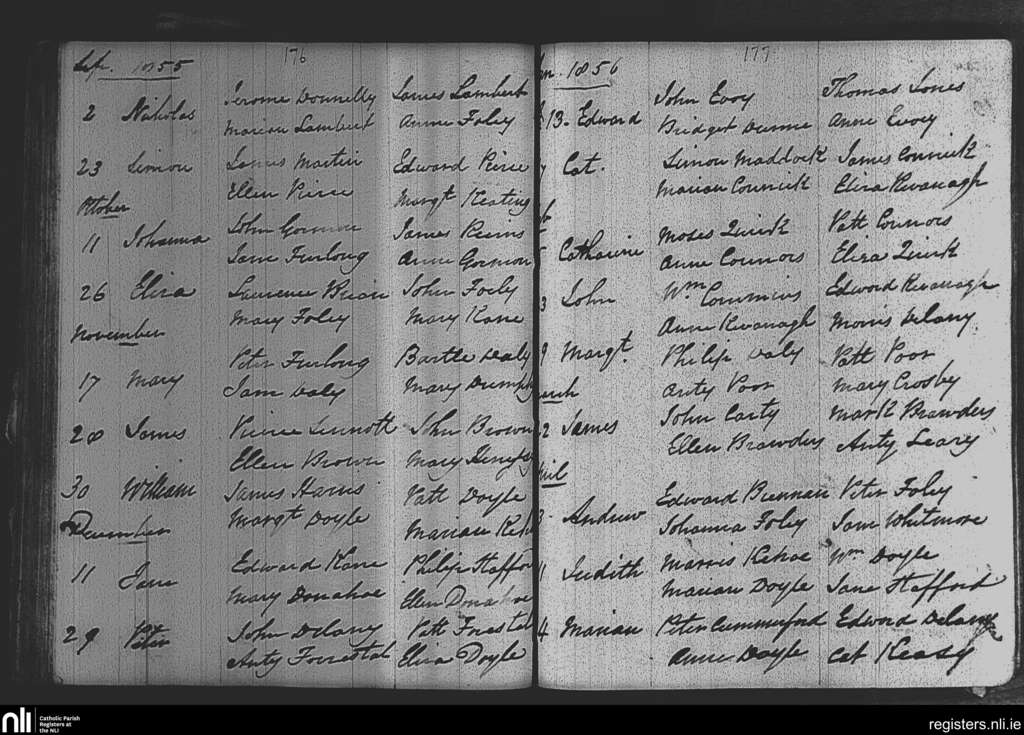 176
Sep. 1855
Jerome Donnelly James Lambert
2 Nicholas
Marian Lambert Anne Foley
23 Simon James Martin Edward Pierce
Ellen Pierce Margt Keating
October
11 Johanna John Gorman James
Jane Furlong Anne Gorman
26 Eliza Laurence Brian John Foley
Mary Foley Mary Kane
November
Peter Furlong Bartle Daly
17 Mary Jane Daly Mary
28 James Pierce Sinnott John Brown
Ellen Brown Mary
30 William James Harris Patt Doyle
Margt Doyle Marian
December
11 Jane Edward Kane Philip
Mary Donahoe Ellen Donahoe
29 Peter John Delany Patt
Anty Forrestal Eliza Doyle
177
1856
John Evoy Thomas Jones
13. Edward
Bridget Dunne Anne Evoy
Cat. Simon Maddock James Connick
Marian Connick Eliza Kavanagh
Catharine Moses Quirk Patt Connors
Anne Connors Eliza Quirk
3 John Wm Commins Edward Kavanagh
Anne Kavanagh Morris Delany
9 Margt. Philip Daly Patt Poor
Anty Poor Mary Crosby
John Carty Mark Brawders
2 James
Ellen Brawders Anty Leary
Andrew Edward Brennan Peter Foley
Johanna Foley Jane Whitmore
Judith Morris Kehoe Wm Doyle
Marian Doyle Jane Stafford
4 Marian Peter Cummerford Edward Delany
Anne Doyle Cat
nli Catholic Parish
Registers at
the NLI
registers.nli.ie